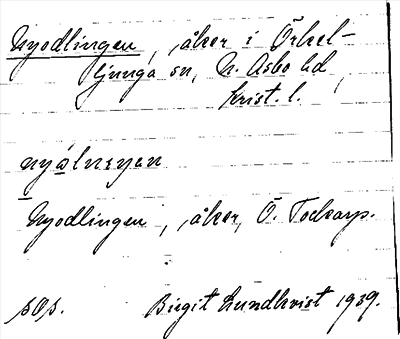 Nyodlingen, åker i Örkel-
ljunga sn, N. Åsbo hd,
Krist. l.
Nyodlingen, åker, Ö. Tockarp.
sOs. Birgit Lundkvist 1939.